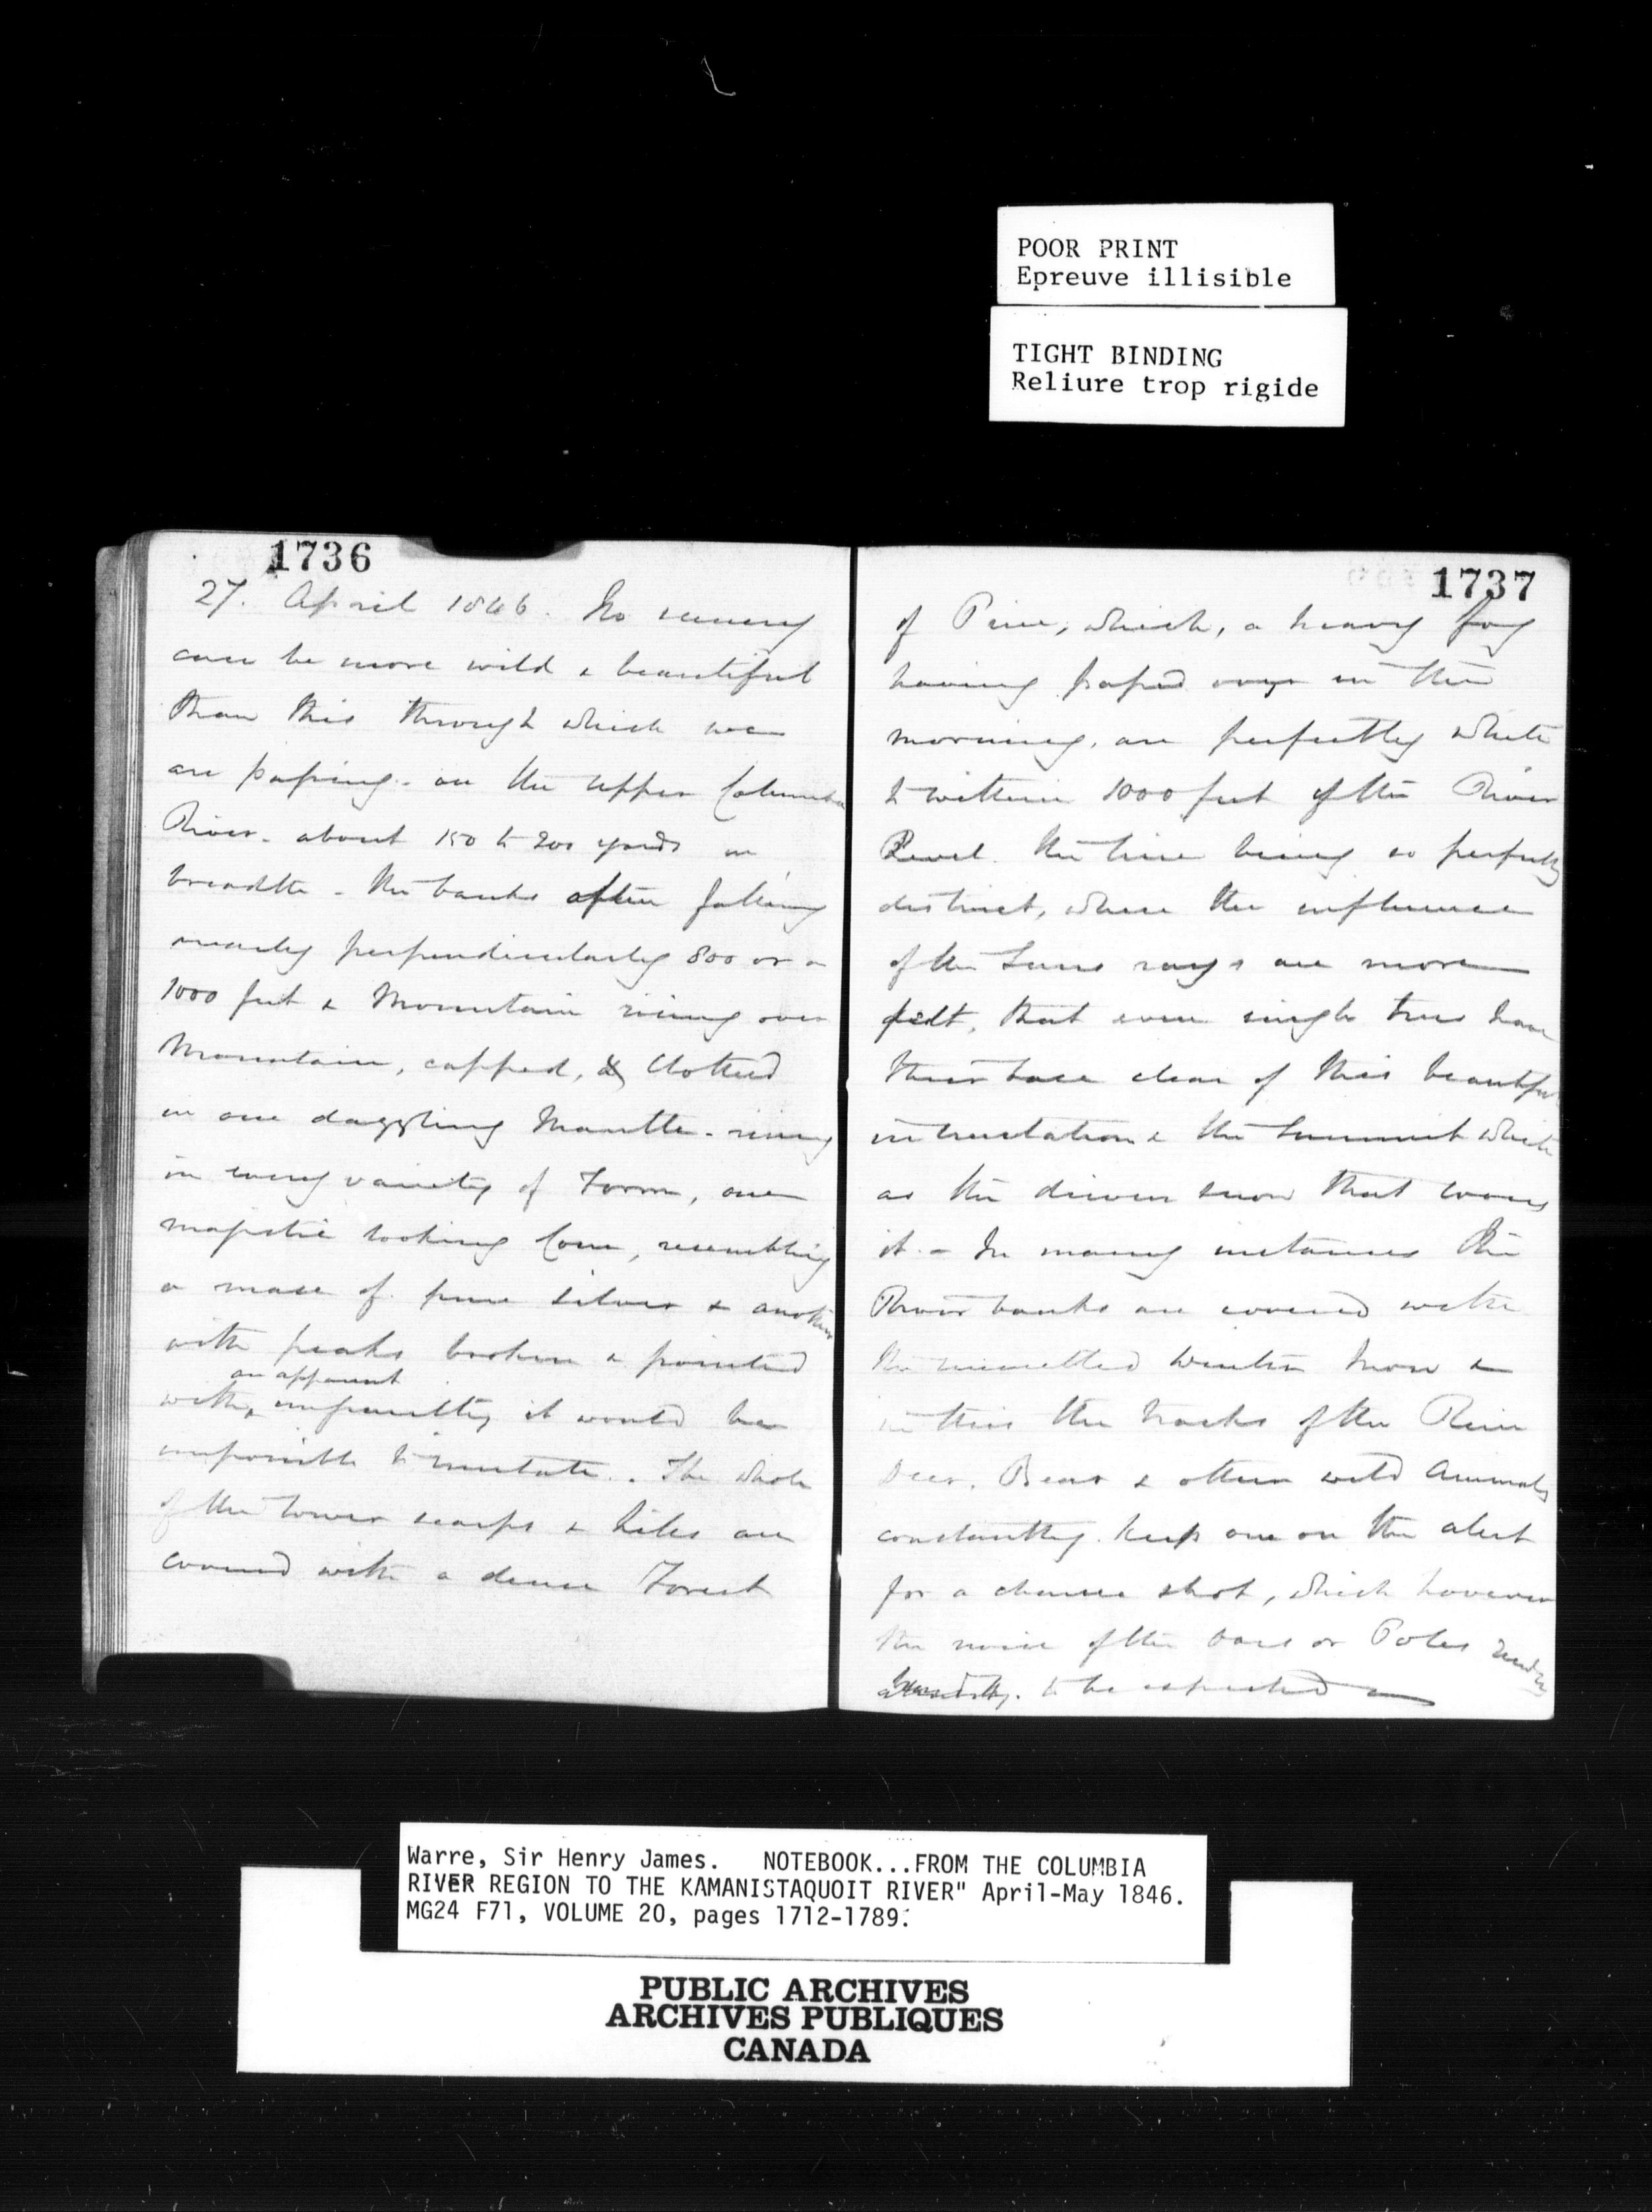 POOR PRINT
Epreuve illisible
TIGHT BINDING
Reliure trop rigide
1736
27. April 1846. No scenery
can be more wild & beautiful
than this through which we
are passing. on the upper Columbia
River. about 150 to 200 yards in
breadth - the banks often falling
nearly perpendicularly 800 or a
1000 feet & Mountain rising over
Mountain, capped, & Clothed
in one dazzling Mantle. rising
in every variety of Form, one
majestic looking Cone, resembling
a mass of pure silver & another
with peaks broken & pointed
an apparent
with it would be
impossible to imitate. The whole
of the lower scarps & hills are
covered with a dense Forest
1737
of Pine, which, a heavy fog
having passed over in the
morning, are perfectly white
to within 1000 feet of the River
Level. the line being so perfectly
distinct, where the influence
of the Suns rays are more
felt, that even single trees have
their base clear of this beautiful
incrustation & the Summit white
as the driven snow that covers
it. - In many instances the
River banks are covered with
the unmelted Winter Snow &
in this the tracks of the Rein
Deer, Bear & other wild Animals
constantly keep one on the alert
for a chance shot, which however
the noise of the oars or Poles renders
to be expected
Warre, Sir Henry James. NOTEBOOK...FROM THE COLUMBIA
RIVER REGION TO THE KAMANISTAQUOIT RIVER" April-May 1846.
MG24 F71, VOLUME 20, pages 1712-1789.
PUBLIC ARCHIVES
ARCHIVES PUBLIQUES
CANADA